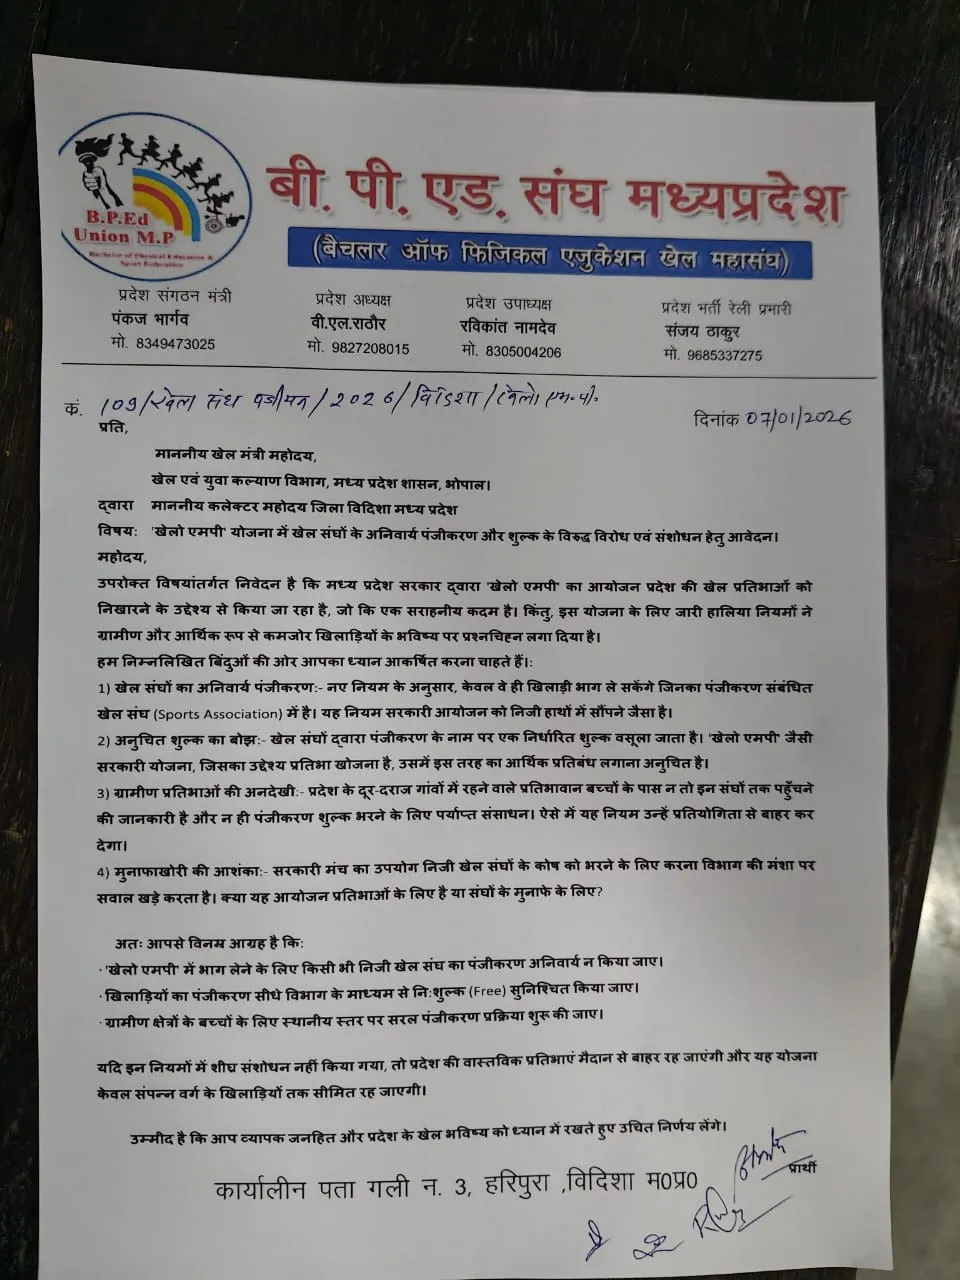 B.P.Ed
Union M.P
Bachelor of Physical Education &
Sport Federation
बी. पी. एड. संघ मध्यप्रदेश
(बैचलर ऑफ फिजिकल एजुकेशन खेल महासंघ)
प्रदेश संगठन मंत्री
पंकज भार्गव
मो. 8349473025
प्रदेश अध्यक्ष
वी.एल.राठौर
मो. 9827208015
प्रदेश उपाध्यक्ष
रविकांत नामदेव
मो. 8305004206
प्रदेश भर्ती रेली प्रभारी
संजय ठाकुर
मो. 9685337275
कं. 109/खेल संघ पंजीयन/2026/विदिशा/खेलो एम.पी.
दिनांक 07/01/2026
प्रति,
माननीय खेल मंत्री महोदय,
खेल एवं युवा कल्याण विभाग, मध्य प्रदेश शासन, भोपाल।
द्वारा माननीय कलेक्टर महोदय जिला विदिशा मध्य प्रदेश
विषय: 'खेलो एमपी' योजना में खेल संघों के अनिवार्य पंजीकरण और शुल्क के विरुद्ध विरोध एवं संशोधन हेतु आवेदन।
महोदय,
उपरोक्त विषयांतर्गत निवेदन है कि मध्य प्रदेश सरकार द्वारा 'खेलो एमपी' का आयोजन प्रदेश की खेल प्रतिभाओं को
निखारने के उद्देश्य से किया जा रहा है, जो कि एक सराहनीय कदम है। किंतु, इस योजना के लिए जारी हालिया नियमों ने
ग्रामीण और आर्थिक रूप से कमजोर खिलाड़ियों के भविष्य पर प्रश्नचिह्न लगा दिया है।
हम निम्नलिखित बिंदुओं की ओर आपका ध्यान आकर्षित करना चाहते हैं।:
1) खेल संघों का अनिवार्य पंजीकरण:- नए नियम के अनुसार, केवल वे ही खिलाड़ी भाग ले सकेंगे जिनका पंजीकरण संबंधित
खेल संघ (Sports Association) में है। यह नियम सरकारी आयोजन को निजी हाथों में सौंपने जैसा है।
2) अनुचित शुल्क का बोझ:- खेल संघों द्वारा पंजीकरण के नाम पर एक निर्धारित शुल्क वसूला जाता है। 'खेलो एमपी' जैसी
सरकारी योजना, जिसका उद्देश्य प्रतिभा खोजना है, उसमें इस तरह का आर्थिक प्रतिबंध लगाना अनुचित है।
3) ग्रामीण प्रतिभाओं की अनदेखी:- प्रदेश के दूर-दराज गांवों में रहने वाले प्रतिभावान बच्चों के पास न तो इन संघों तक पहुँचने
की जानकारी है और न ही पंजीकरण शुल्क भरने के लिए पर्याप्त संसाधन। ऐसे में यह नियम उन्हें प्रतियोगिता से बाहर कर
देगा।
4) मुनाफाखोरी की आशंका:- सरकारी मंच का उपयोग निजी खेल संघों के कोष को भरने के लिए करना विभाग की मंशा पर
सवाल खड़े करता है। क्या यह आयोजन प्रतिभाओं के लिए है या संघों के मुनाफे के लिए?
अतः आपसे विनम्र आग्रह है कि:
· 'खेलो एमपी' में भाग लेने के लिए किसी भी निजी खेल संघ का पंजीकरण अनिवार्य न किया जाए।
· खिलाड़ियों का पंजीकरण सीधे विभाग के माध्यम से नि:शुल्क (Free) सुनिश्चित किया जाए।
· ग्रामीण क्षेत्रों के बच्चों के लिए स्थानीय स्तर पर सरल पंजीकरण प्रक्रिया शुरू की जाए।
यदि इन नियमों में शीघ्र संशोधन नहीं किया गया, तो प्रदेश की वास्तविक प्रतिभाएं मैदान से बाहर रह जाएंगी और यह योजना
केवल संपन्न वर्ग के खिलाड़ियों तक सीमित रह जाएगी।
उम्मीद है कि आप व्यापक जनहित और प्रदेश के खेल भविष्य को ध्यान में रखते हुए उचित निर्णय लेंगे।
प्रार्थी
कार्यालीन पता गली न. 3, हरिपुरा ,विदिशा म0प्र0